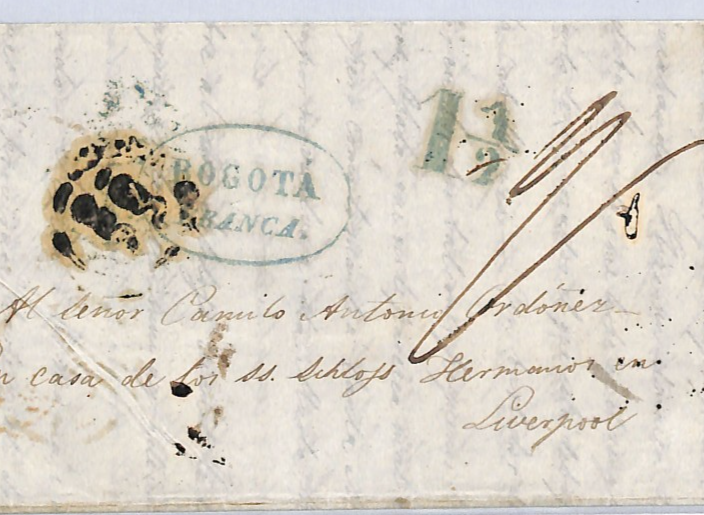 BOGOTÁ
FRANCA.
1 1/2
Al Señor Camilo Antonio Ordóñez
en casa de los SS. Schloss Hermanos en
Liverpool